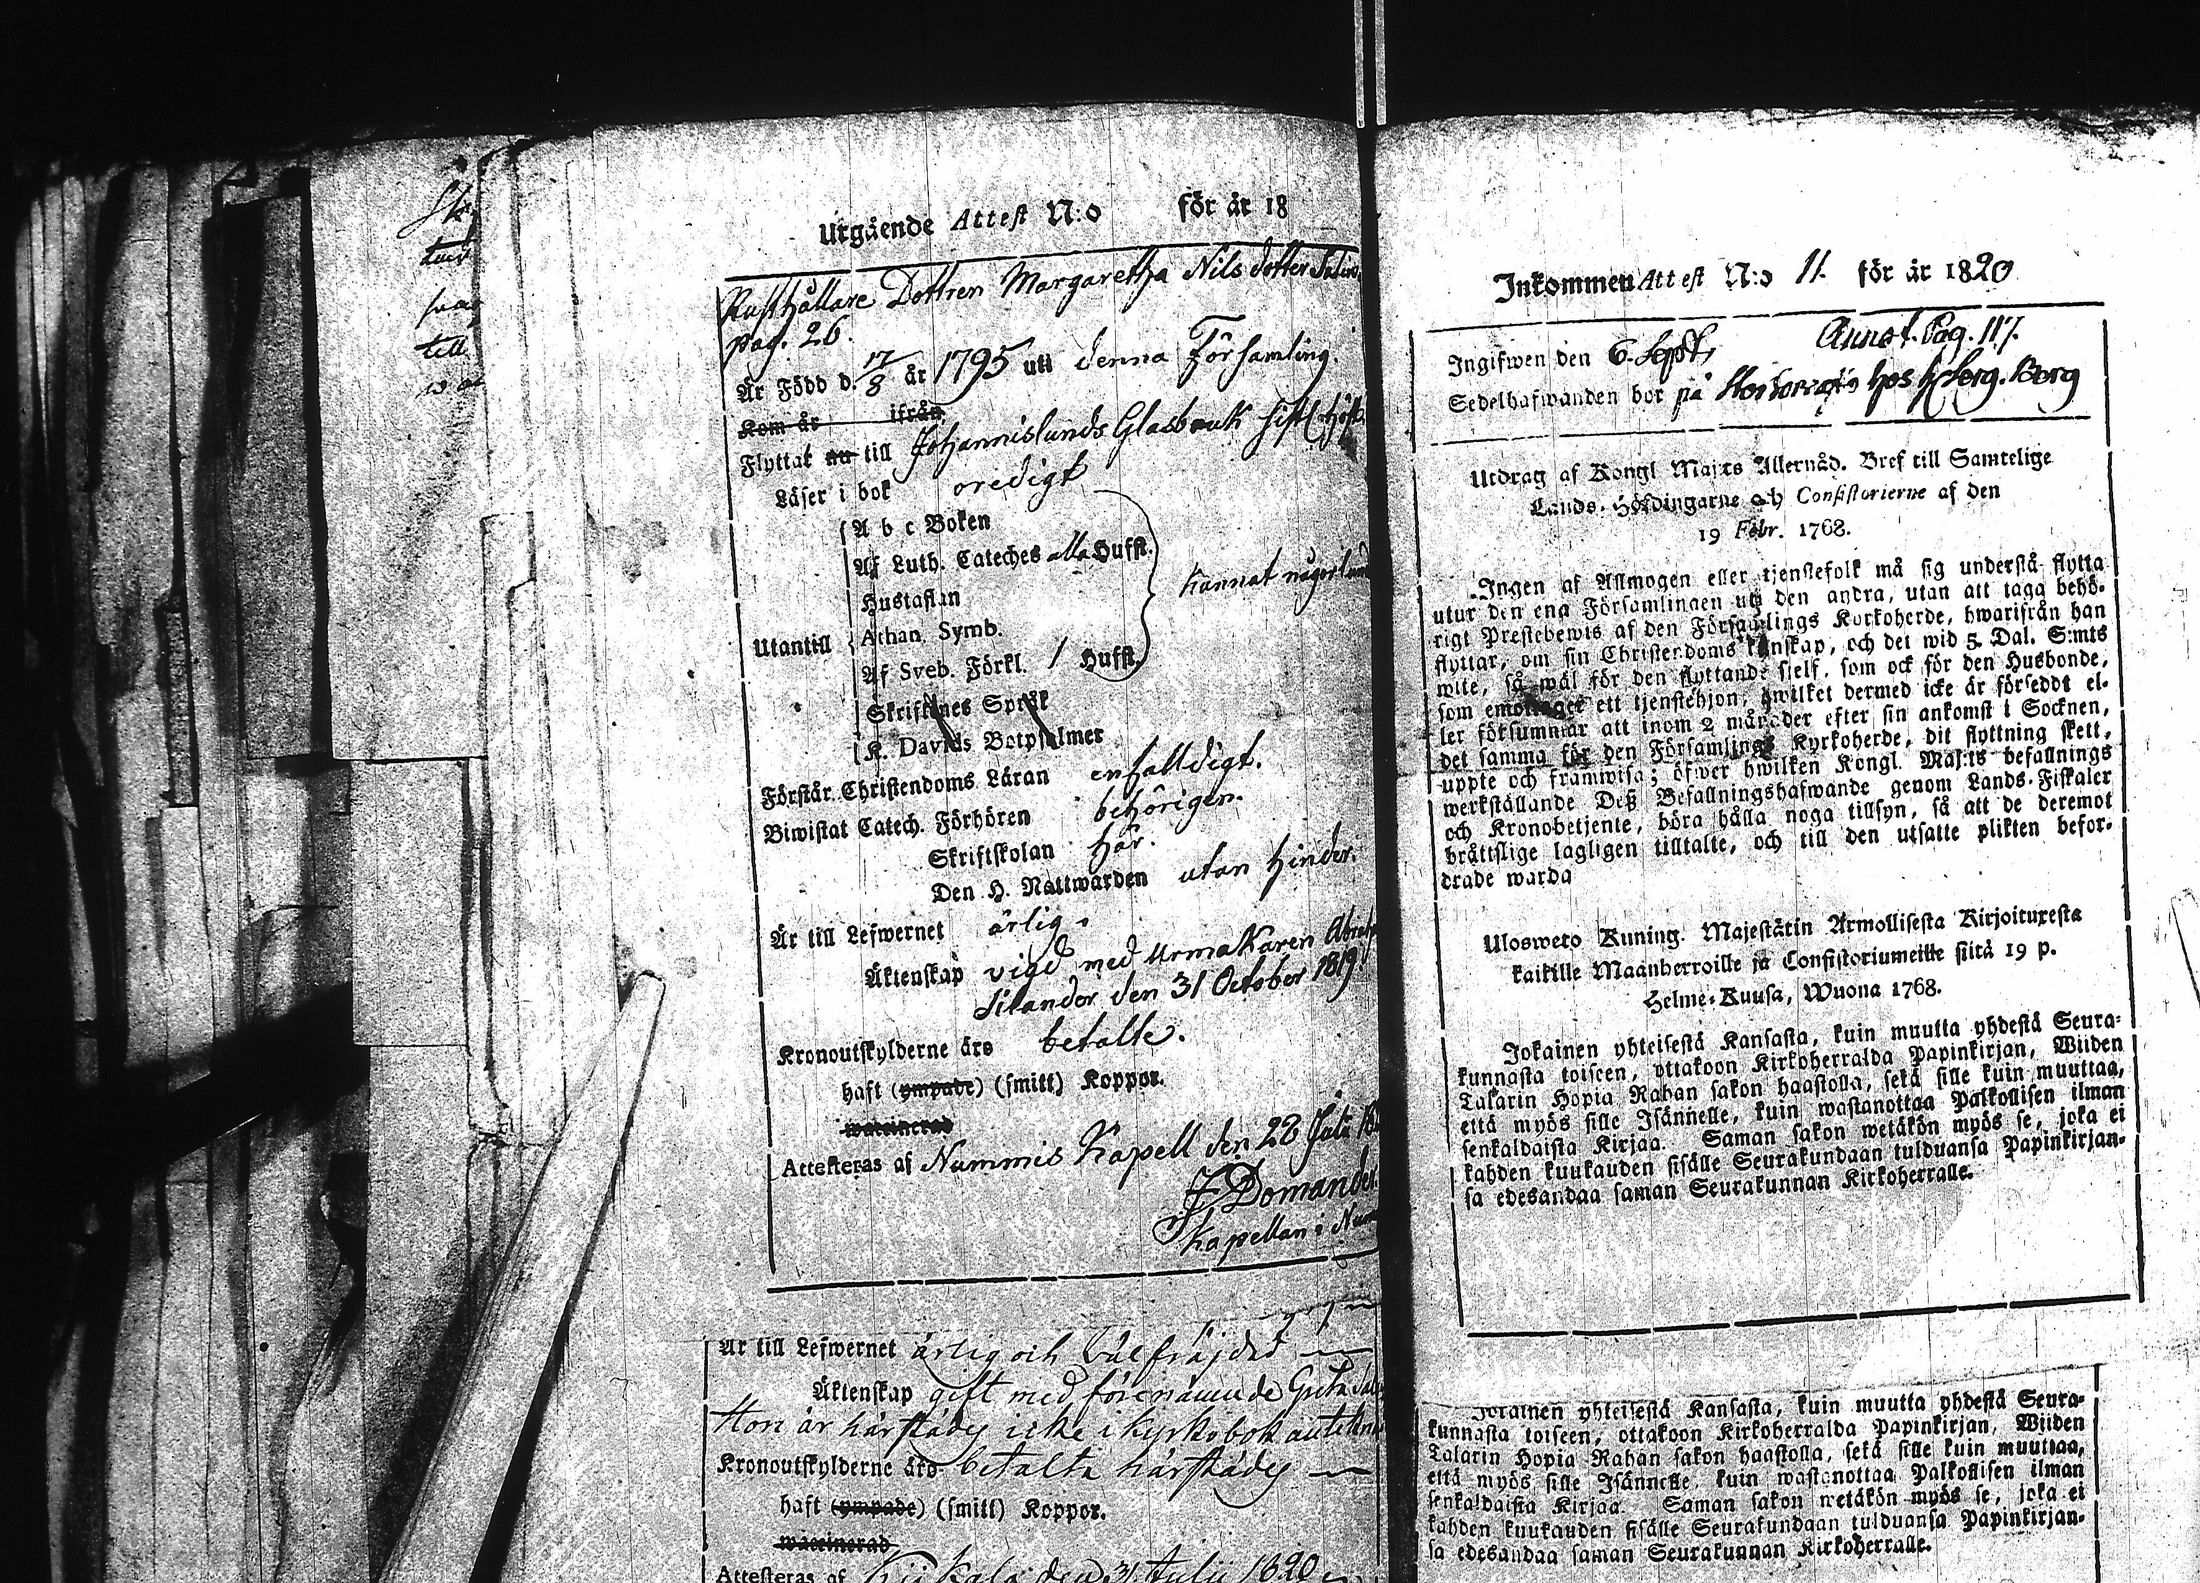 Utgående Attest N:o för år 18
Rusthållare Dottren Margaretha Nils dotter
pag. 26.
Är Född d. 17/8 år 1795 uti denna Församling.
Kom år ifrån
Flyttat nu till Johannislunds Glasbruk sistl. Höst
Läser i bok oredigt
A b c Boken
Af Luth. Cateches alla Hufst.
Hustaflan
kunnat någorlunda
Utantill
Athan. Symb.
Af Sveb. Förkl. 1 Hufst.
Skriftenes Språk
K. Davids Botpsalmer
Förstår Christendoms Läran enfalldigt.
Biwistat Catech. Förhören behörigen.
Skriftskolan här.
Den H. Nattwarden utan hinder.
Är till Lefwernet ärlig.
Äktenskap vigd med Urmakaren
Silander den 31 October 1819.
Kronoutskylderne äro betalte.
haft (ympade) (smitt) Koppor.
waccinerad
Attesteras af Nummis Kapell den 28 Julii
J Domander
Kapellan i
Är till Lefwernet ärlig och
Äktenskap gift med förenämnde Greta
Hon är härstädes icke i kyrkobok
Kronoutskylderne äro betalta härstädes
haft (ympade) (smitt) Koppor.
waccinerad
Attesteras af Kiikala den 31 Julii 1820
Inkommen Attest N:o 11. för år 1820
Ingifwen den 6. Sept. Annot. Pag. 117.
Sedelhafwanden bor på hos H Serg. Berg
Utdrag af Kongl Maj:ts Allernåd. Bref till Samtelige
Lands-Höfdingarne och Consistorierne af den
19 Febr. 1768.
Ingen af Allmogen eller tjenstefolk må sig understå flytta
utur den ena Församlingen uti den andra, utan att taga behö-
rigt Prestebewis af den Församlings Kyrkoherde, hwarifrån han
flyttar, om sin Christendoms kunskap, och det wid 5 Dal. S:mts
wite, så wäl för den flyttande sjelf, som ock för den Husbonde,
som emottager ett tjenstehjon, hwilket dermed icke är försedt el-
ler försummar att inom 2 månader efter sin ankomst i Socknen,
det samma för den Församlings Kyrkoherde, dit flyttning skett,
uppte och framwisa; öfwer hwilken Kongl. Maj:ts befallnings
werkställande Deß Befallningshafwande genom Lands-Fiskaler
och Kronobetjente, böra hålla noga tillsyn, så att de deremot
bråttslige lagligen tilltalte, och till den utsatte plikten befor-
drade warda
Ulosweto Kuning. Majestätin Armollisesta Kirjoituxesta
kaikille Maanherroille ja Consistoriumeille siitä 19 p.
Helme-Kuusa, Wuona 1768.
Jokainen yhteisestä Kansasta, kuin muutta yhdestä Seura-
kunnasta toiseen, ottakoon Kirkoherralda Papinkirjan, Wiiden
Talarin Hopia Rahan sakon haastolla, sekä sille kuin muuttaa,
että myös sille Isännelle, kuin wastanottaa Palkollisen ilman
senkaldaista Kirjaa. Saman sakon wetäkön myös se, joka ei
kahden kuukauden sisälle Seurakundaan tulduansa Papinkirjan-
sa edesandaa saman Seurakunnan Kirkoherralle.
Jokainen yhteisestä Kansasta, kuin muutta yhdestä Seura-
kunnasta toiseen, ottakoon Kirkoherralda Papinkirjan, Wiiden
Talarin Hopia Rahan sakon haastolla, sekä sille kuin muuttaa,
että myös sille Isännelle, kuin wastanottaa Palkollisen ilman
senkaldaista Kirjaa. Saman sakon wetäkön myös se, joka ei
kahden kuukauden sisälle Seurakundaan tulduansa Papinkirjan-
sa edesandaa saman Seurakunnan Kirkoherralle.